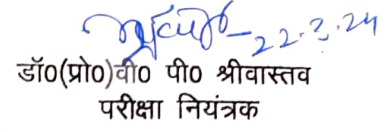 22.3.24
डॉ0(प्रो0)वी0 पी0 श्रीवास्तव
परीक्षा नियंत्रक